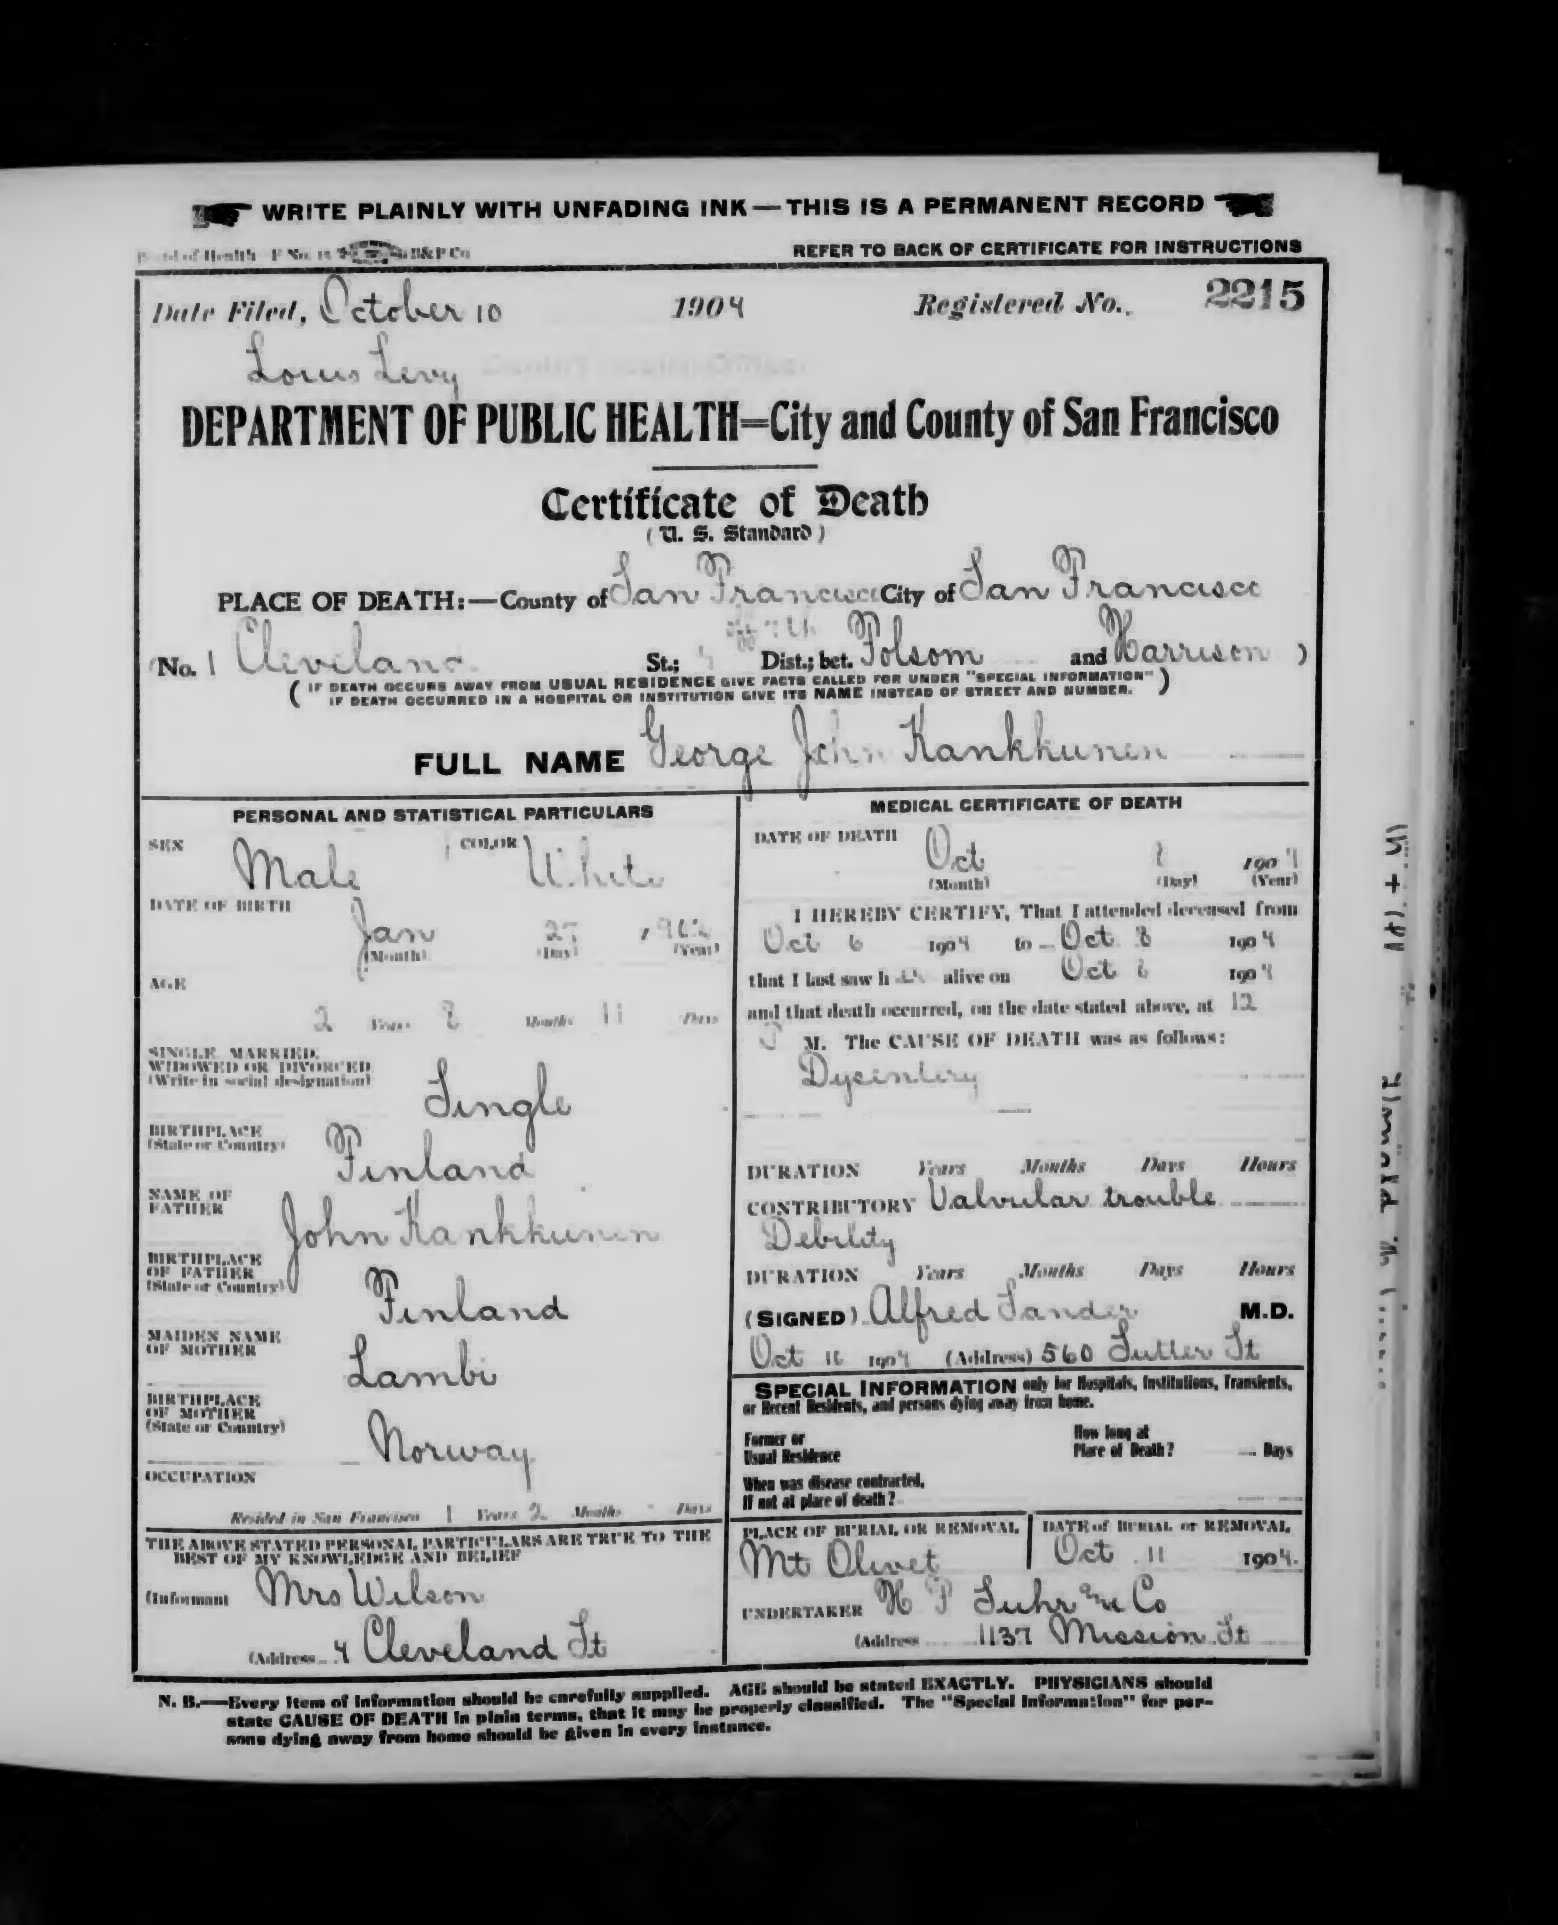 WRITE PLAINLY WITH UNFADING INK—THIS IS A PERMANENT RECORD
Board of Health—F No. 15 B&P Co
REFER TO BACK OF CERTIFICATE FOR INSTRUCTIONS
Date Filed, October 10 1904 Registered No. 2215
Louis Levy
DEPARTMENT OF PUBLIC HEALTH=City and County of San Francisco
Certificate of Death
(U. S. Standard)
PLACE OF DEATH:—County of San Francisco City of San Francisco
(No. 1 Cleveland St.; Dist.; bet. 7th Folsom and Harrison )
( IF DEATH OCCURS AWAY FROM USUAL RESIDENCE GIVE FACTS CALLED FOR UNDER "SPECIAL INFORMATION" )
IF DEATH OCCURRED IN A HOSPITAL OR INSTITUTION GIVE ITS NAME INSTEAD OF STREET AND NUMBER.
FULL NAME George John Kankkunen
PERSONAL AND STATISTICAL PARTICULARS
SEX Male COLOR White
DATE OF BIRTH
Jan 27 1902
(Month) (Day) (Year)
AGE
2 Years 8 Months 11 Days
SINGLE, MARRIED,
WIDOWED OR DIVORCED
(Write in social designation)
Single
BIRTHPLACE
(State or Country)
Finland
NAME OF
FATHER
John Kankkunen
BIRTHPLACE
OF FATHER
(State or Country)
Finland
MAIDEN NAME
OF MOTHER
Lambi
BIRTHPLACE
OF MOTHER
(State or Country)
Norway
OCCUPATION
Resided in San Francisco 1 Years 2 Months - Days
THE ABOVE STATED PERSONAL PARTICULARS ARE TRUE TO THE
BEST OF MY KNOWLEDGE AND BELIEF
(Informant Mrs Wilson
(Address 4 Cleveland St
MEDICAL CERTIFICATE OF DEATH
DATE OF DEATH
Oct 8 1904
(Month) (Day) (Year)
I HEREBY CERTIFY, That I attended deceased from
Oct 6 1904 to Oct 8 1904
that I last saw h im alive on Oct 8 1904
and that death occurred, on the date stated above, at 12
P M. The CAUSE OF DEATH was as follows:
Dysentery
DURATION Years Months Days Hours
CONTRIBUTORY Valvular trouble
Debility
DURATION Years Months Days Hours
(SIGNED) Alfred Sander M.D.
Oct 10 1904 (Address) 560 Sutter St
SPECIAL INFORMATION only for Hospitals, Institutions, Transients,
or Recent Residents, and persons dying away from home.
Former or
Usual Residence
How long at
Place of Death? Days
When was disease contracted,
If not at place of death?
PLACE OF BURIAL OR REMOVAL
Mt Olivet
DATE of BURIAL or REMOVAL
Oct 11 1904.
UNDERTAKER H P Suhr and Co
(Address 1137 Mission St
N. B.—Every item of information should be carefully supplied. AGE should be stated EXACTLY. PHYSICIANS should
state CAUSE OF DEATH in plain terms, that it may be properly classified. The "Special Information" for per-
sons dying away from home should be given in every instance.